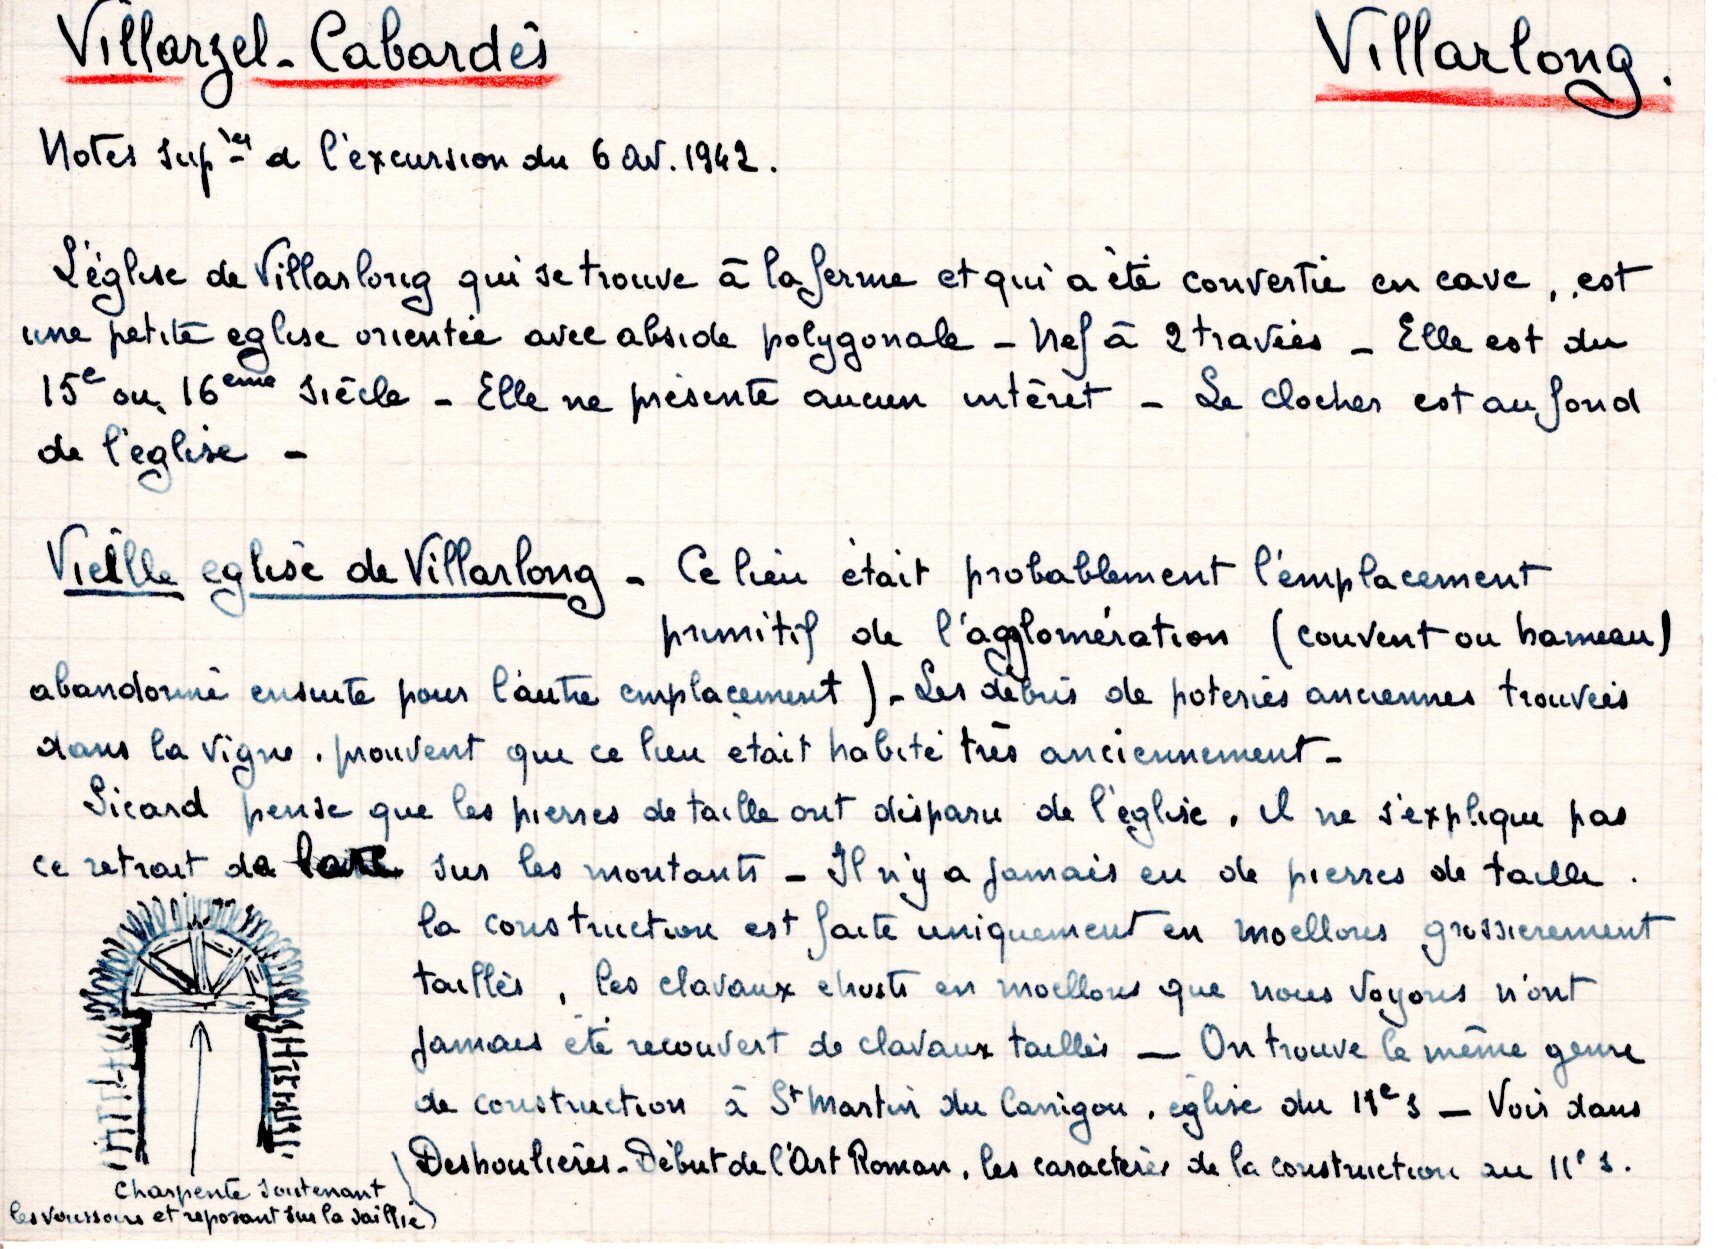 Villarzel-Cabardès
Villarlong.
Notes sup^res à l'excursion du 6 Av. 1942.
L'église de Villarlong qui se trouve à la ferme et qui a été convertie en cave, est
une petite église orientée avec abside polygonale - Nef à 2 travées - Elle est du
15e ou 16ème siècle - Elle ne présente aucun intérêt - Le clocher est au fond
de l'église -
Vieille église de Villarlong - Ce lieu était probablement l'emplacement
primitif de l'agglomération (couvent ou hameau)
abandonné ensuite pour l'autre emplacement) - Les débris de poteries anciennes trouvées
dans la vigne, prouvent que ce lieu était habité très anciennement -
Sicard pense que les pierres de taille ont disparu de l'église, il ne s'explique pas
ce retrait de sur les montants - Il n'y a jamais eu de pierres de taille.
la construction est faite uniquement en moellons grossièrement
taillés, les clavaux en moellons que nous voyons n'ont
jamais été recouvert de clavaux taillés — On trouve le même genre
de construction à St Martin du Canigou, église du 11e s — Voir dans
Deshoulières - Début de l'Art Roman, les caractères de la construction au 11e s.
Charpente soutenant
les voussoirs et reposant sur la saillie)